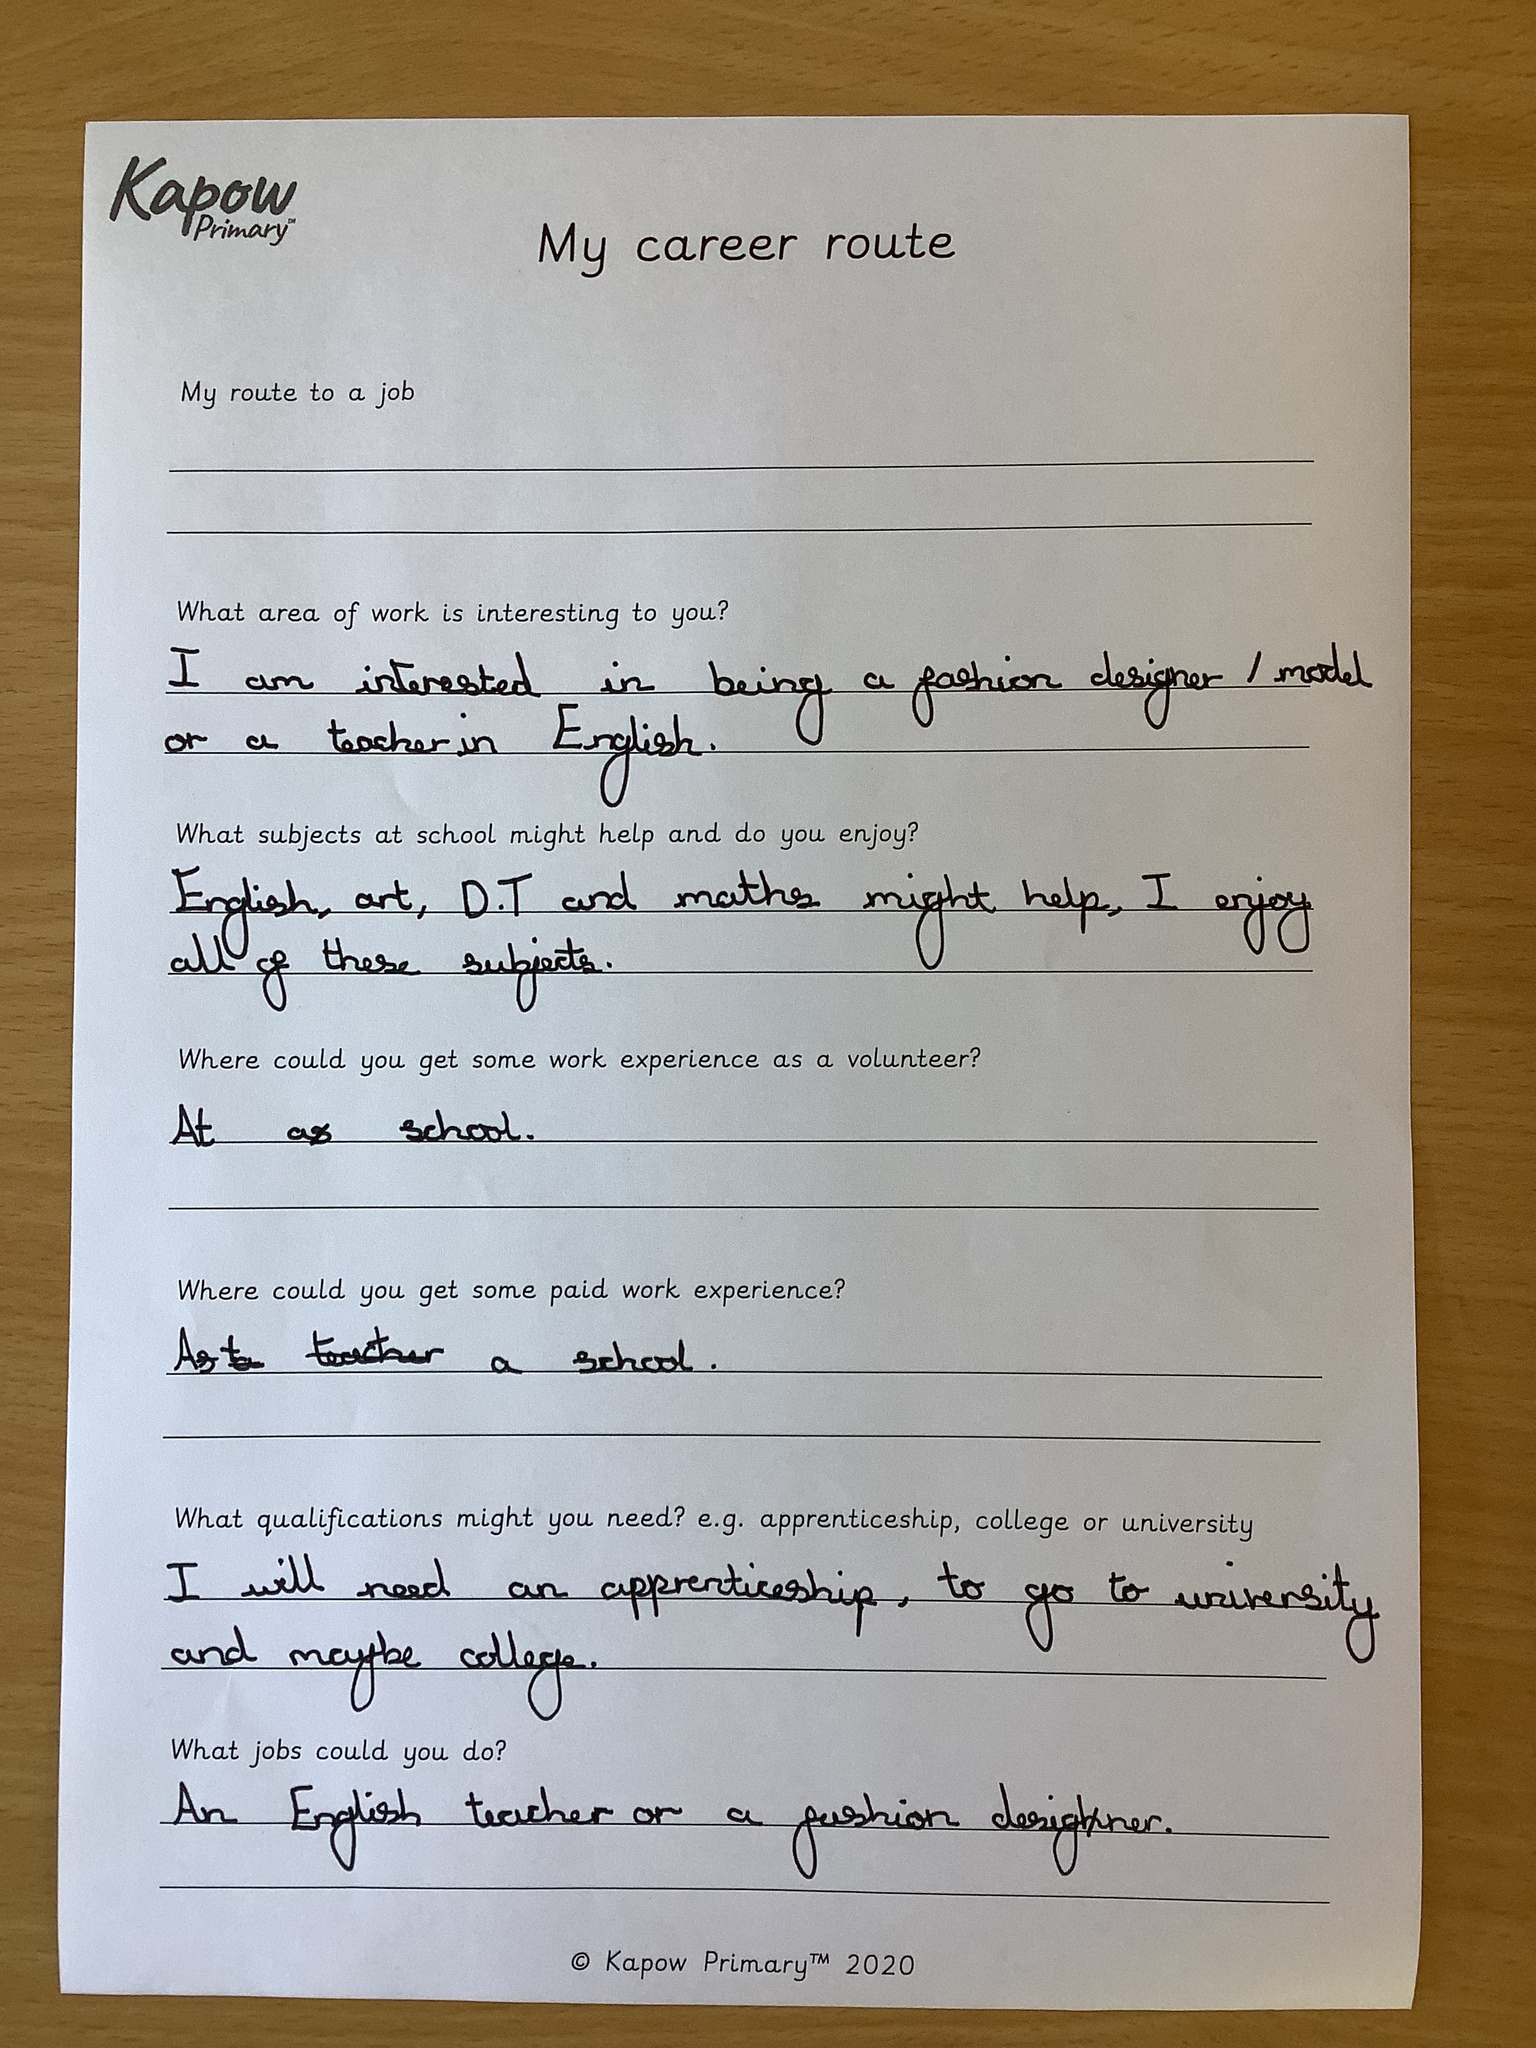 Kapow
Primary™
My career route
My route to a job
What area of work is interesting to you?
I am interested in being a fashion designer / model
or a teacher in English.
What subjects at school might help and do you enjoy?
English, art, D.T and maths might help, I enjoy
all of these subjects.
Where could you get some work experience as a volunteer?
At a school.
Where could you get some paid work experience?
As a teacher a school.
What qualifications might you need? e.g. apprenticeship, college or university
I will need an apprenticeship, to go to university
and maybe college.
What jobs could you do?
An English teacher or a fashion designer.
© Kapow Primary™ 2020